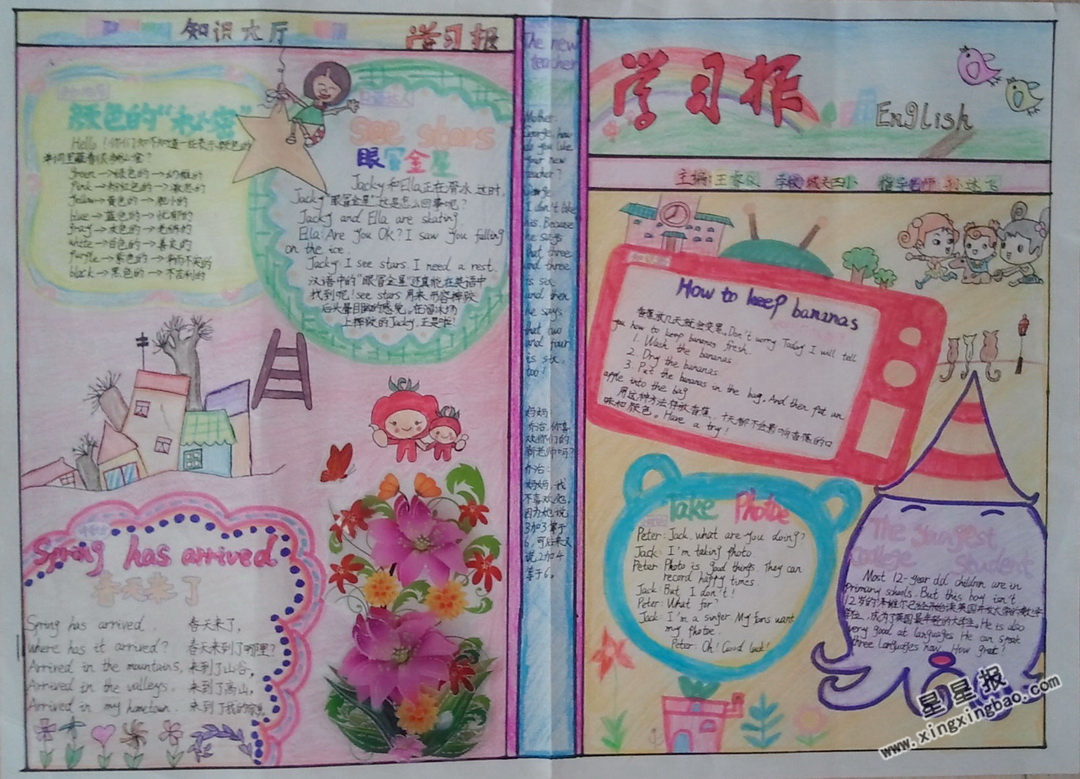 知识大厅
学习报
颜色的"秘密"
Hello！你们知不知道一些表示颜色的
单词里藏着很多秘密？
green→绿色的→幼稚的
Pink→粉红色的
Yellow→黄色的→胆小的
blue→蓝色的→忧郁的
gray→灰色的→老练的
wite→白色的→善良的
purple→紫色的
black→黑色的→不吉利的
see stars
眼冒金星
Jacky和Ella正在滑冰,这时,
Jacky"眼冒金星"这是怎么回事呢？
Jacky and Ella are skating
Ella: Are you OK? I saw you falling
on the ice.
Jacky: I see stars. I need a rest.
汉语中的"眼冒金星"还真能在英语中
找到呢！see stars 用来形容摔跤
后头晕目眩的感觉,在溜冰场
上摔跤的Jacky,正是啦！
Spring has arrived
春天来了
Spring has arrived. 春天来了,
where has it arrived? 春天来到了哪里？
Arrived in the mountains, 来到了山谷,
Arrived in the valleys. 来到了高山,
Arrived in my hometown. 来到了我的家乡
The new
teacher
Mother:
George, how
do you like
your new
teacher?
George:
I don't like
his. Because
he says
that three
and three
is six
and then
he says
that two
and four
is six,
too!
妈妈:
乔治,你喜
欢你们的
新老师吗？
乔治:
妈妈,我
不喜欢他,
因为他说
3加3等于
6,可后来又
说2加4
等于6。
学习报
English
主编:王睿仪 学校:城关四小 指导老师
How to keep bananas
香蕉放几天就会变黑,Don't worry Today I will tell
you how to keep bananas fresh.
1. Wash the bananas
2. Dry the bananas
3. Put the bananas in the bag. And then put an
apple into the bag
用这种方法存放香蕉,十天都不会影响香蕉的口
味和颜色。Have a try!
Take Photoe
Peter: Jack what are you doing?
Jack: I'm taking photo
Peter Photo is good things They can
record happy times
Jack: But I don't!
Peter: What for
Jack: I'm a singer My fans want
my photoe.
Peter: Oh! Good luck!
The Youngest
College Student
Most 12-year old children are in
primary schools. But this boy isn't
12岁的
学位,成为了英国最年轻的大学生。He is also
very good at languages He can speak
three languages now. How great!
星星报
www.xingxingbao.com